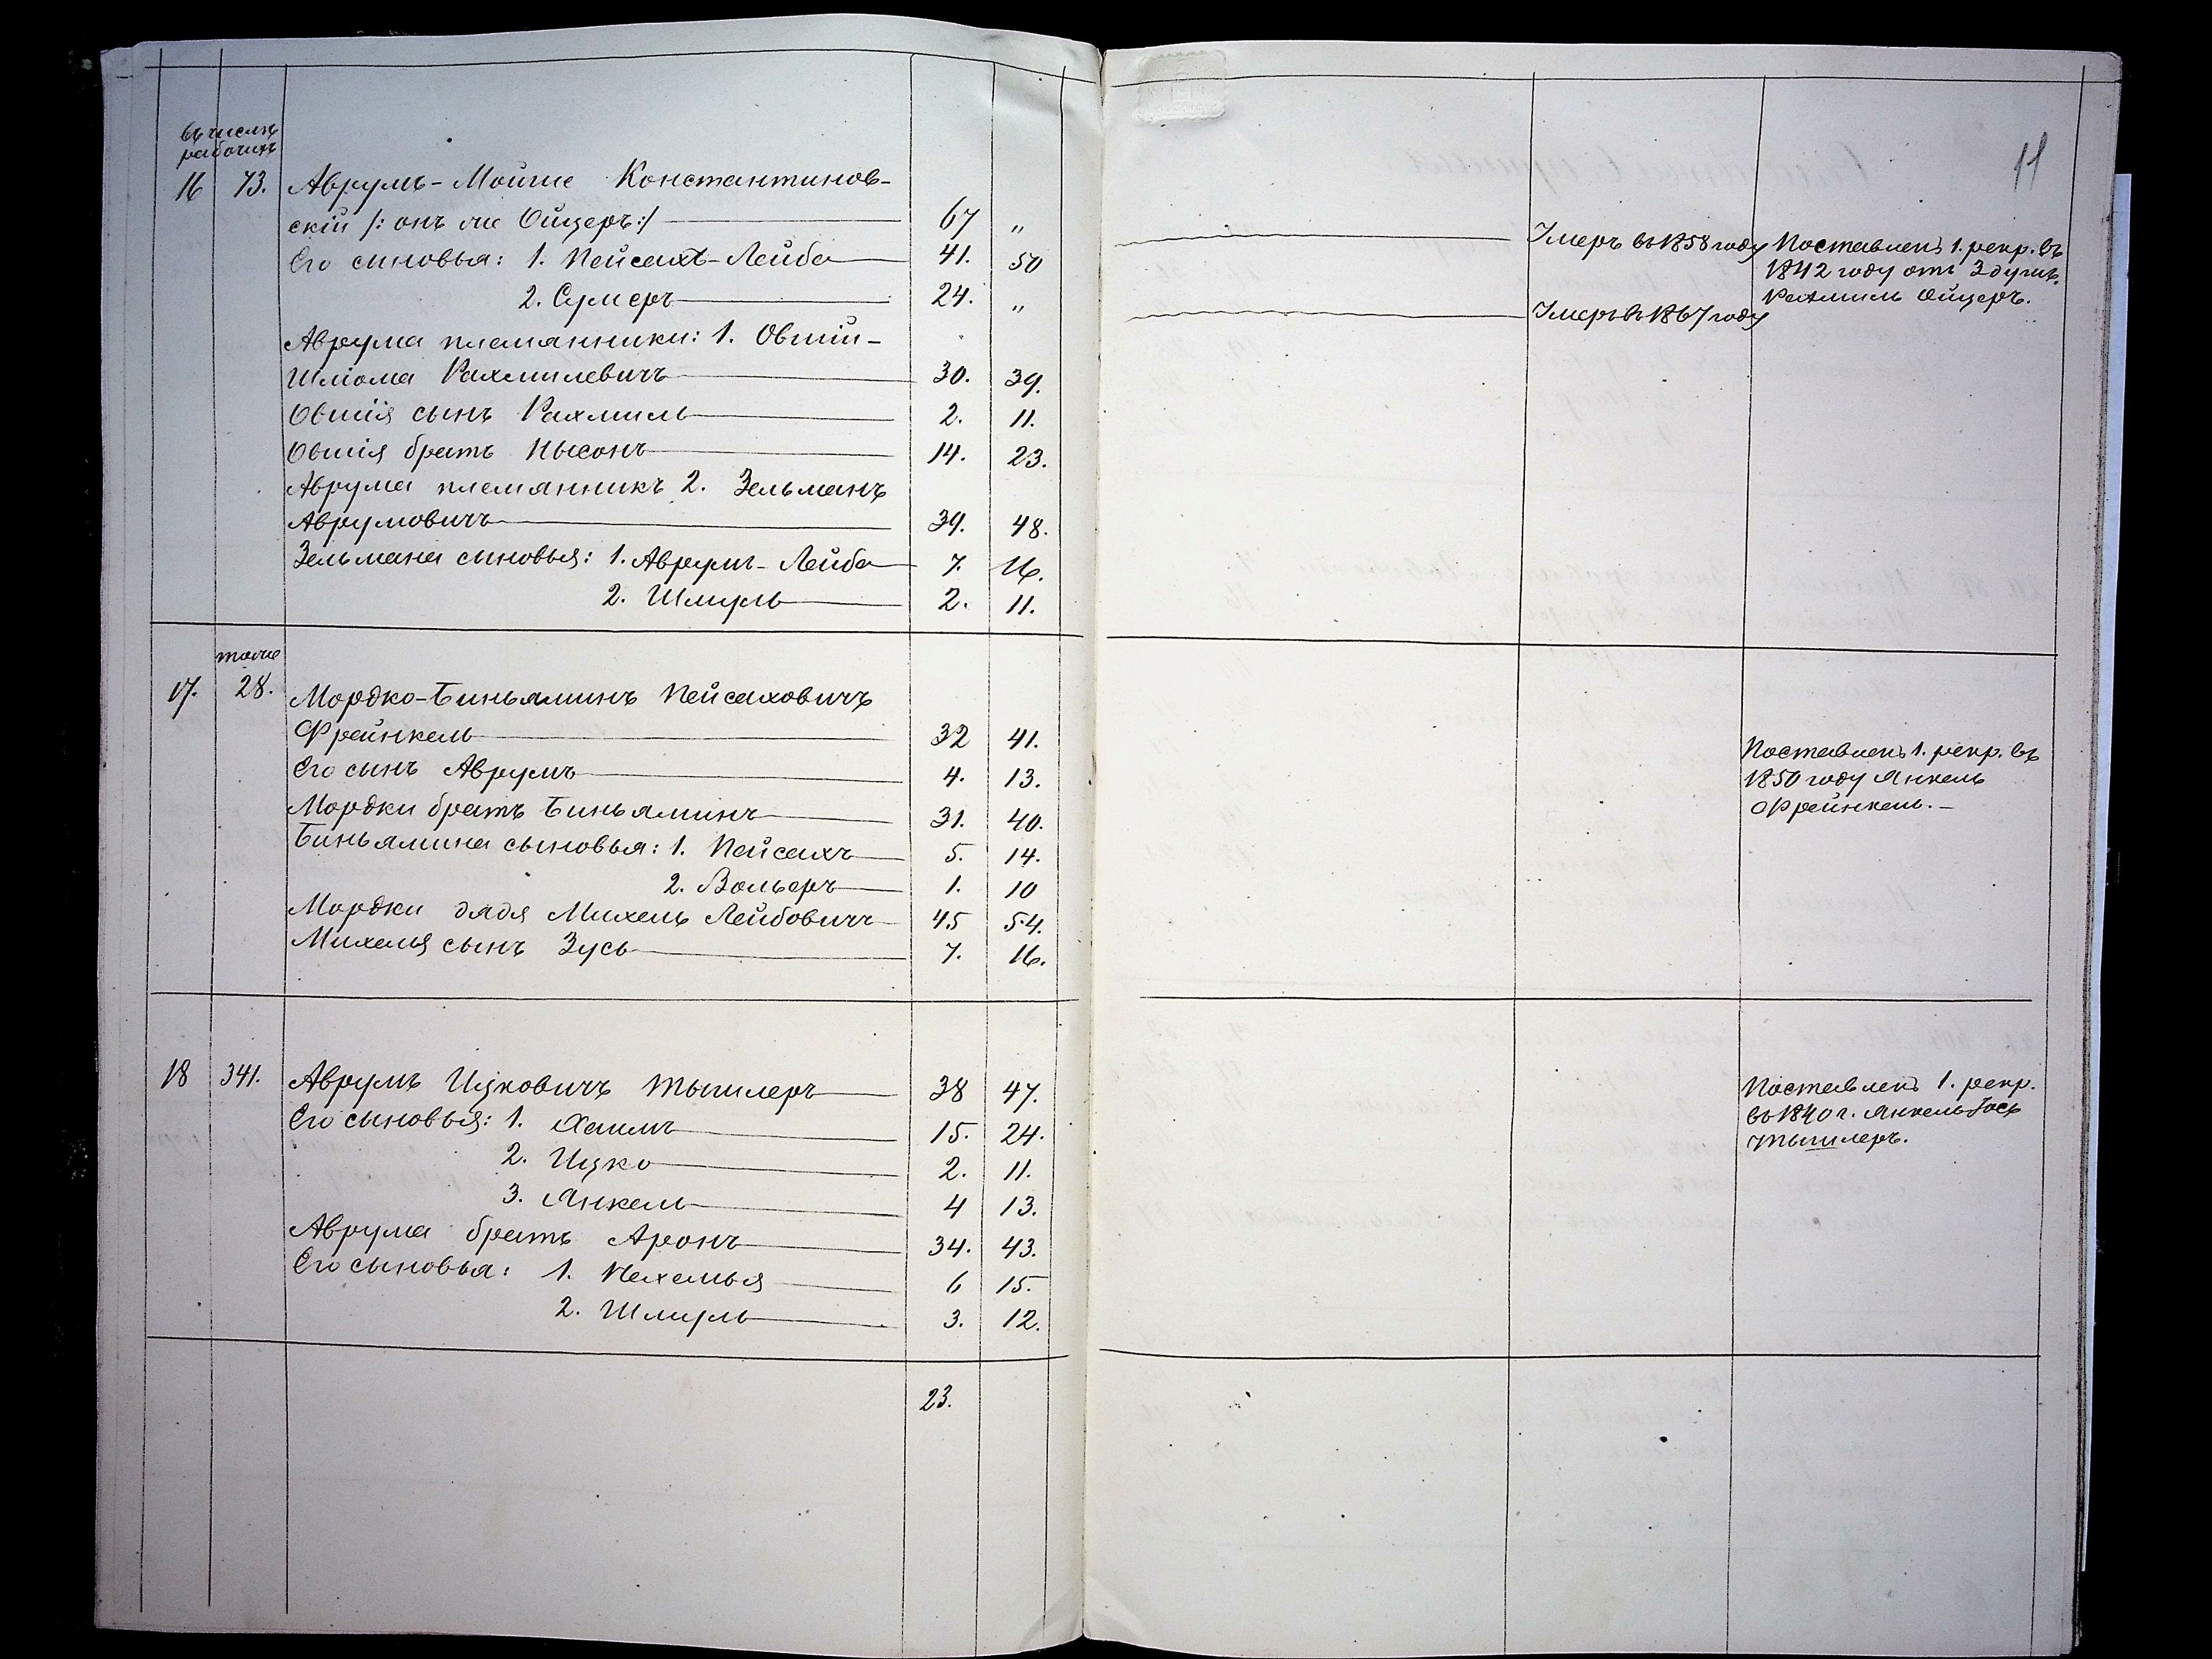 въ числѣ
рабочихъ
16 73. Аврумъ-Мойше Константинов-
скій /: онъ же Ойцеръ:/ 67 "
Его сыновья: 1. Пейсахъ-Лейба 41. 50
2. Сумеръ 24. "
Аврума племянники: 1. Овшій-
Шліома Рахмилевичъ 30. 39.
Овшія сынъ Рахмиль 2. 11.
Овшія братъ Нысонъ 14. 23.
Аврума племянникъ 2. Зельманъ
Аврумовичъ 39. 48.
Зельмана сыновья: 1. Аврумъ-Лейба 7. 16.
2. Шмуль 2. 11.
тоже
17. 28. Мордко-Биньяминъ Пейсаховичъ
Фрейнкель 32 41.
Его сынъ Аврумъ 4. 13.
Мордки братъ Биньяминъ 31. 40.
Биньямина сыновья: 1. Пейсахъ 5. 14.
2. Вольферъ 1. 10
Мордки дядя Михель Лейбовичъ 45 54.
Михеля сынъ Зусь 7. 16.
18 341. Аврумъ Ицковичъ Тышлеръ 38 47.
Его сыновья: 1. Хаимъ 15. 24.
2. Ицко 2. 11.
3. Янкель 4 13.
Аврума братъ Аронъ 34. 43.
Его сыновья: 1. Нехемья 6 15.
2. Шмуль 3. 12.
23.
11
Умеръ въ 1858 году
Поставленъ 1. рекр. въ
1842 году отъ 3 душъ.
Рахмиль Ойцеръ.
Умеръ въ 1867 году
Поставленъ 1. рекр. въ
1850 году Янкель
Фрейнкель.-
Поставленъ 1. рекр.
въ 1840 г. Янкель-Іось
Тышлеръ.